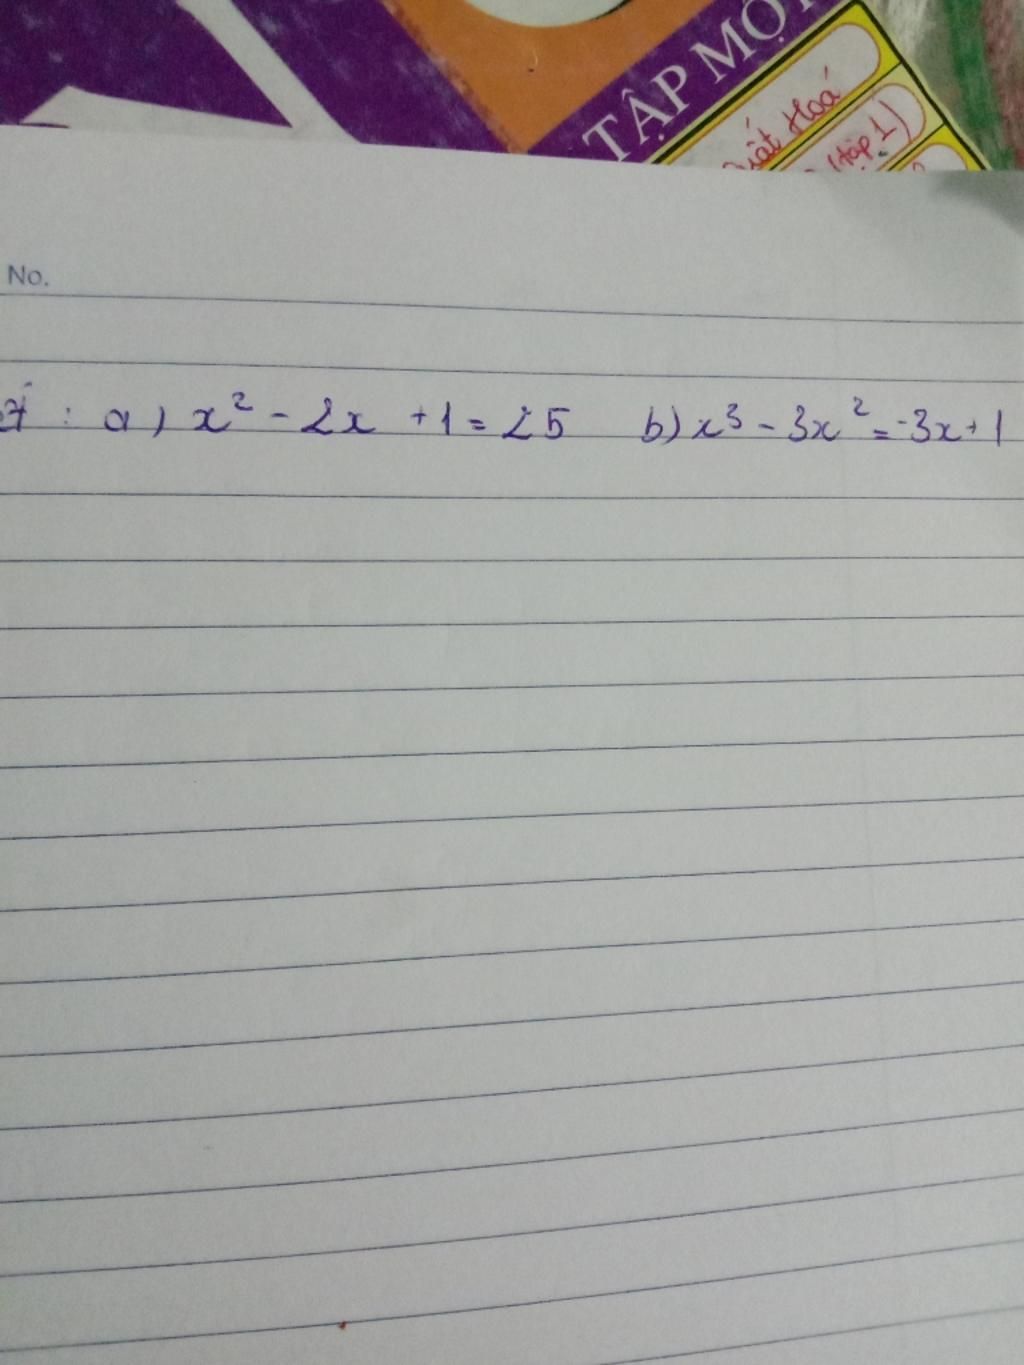 TẬP MỘT
Hoá
(tập 1)
No.
: a) x² - 2x + 1 = 25 b) x³ - 3x² = -3x + 1